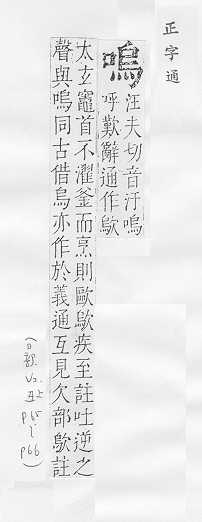 正字通
嗚
汪夫切音汙嗚
呼歎辭通作歍
太玄竈首不濯釜而烹則歐歍疾至註吐逆之
聲與嗚同古借烏亦作於義通互見欠部歍註
V2.
p65
p66